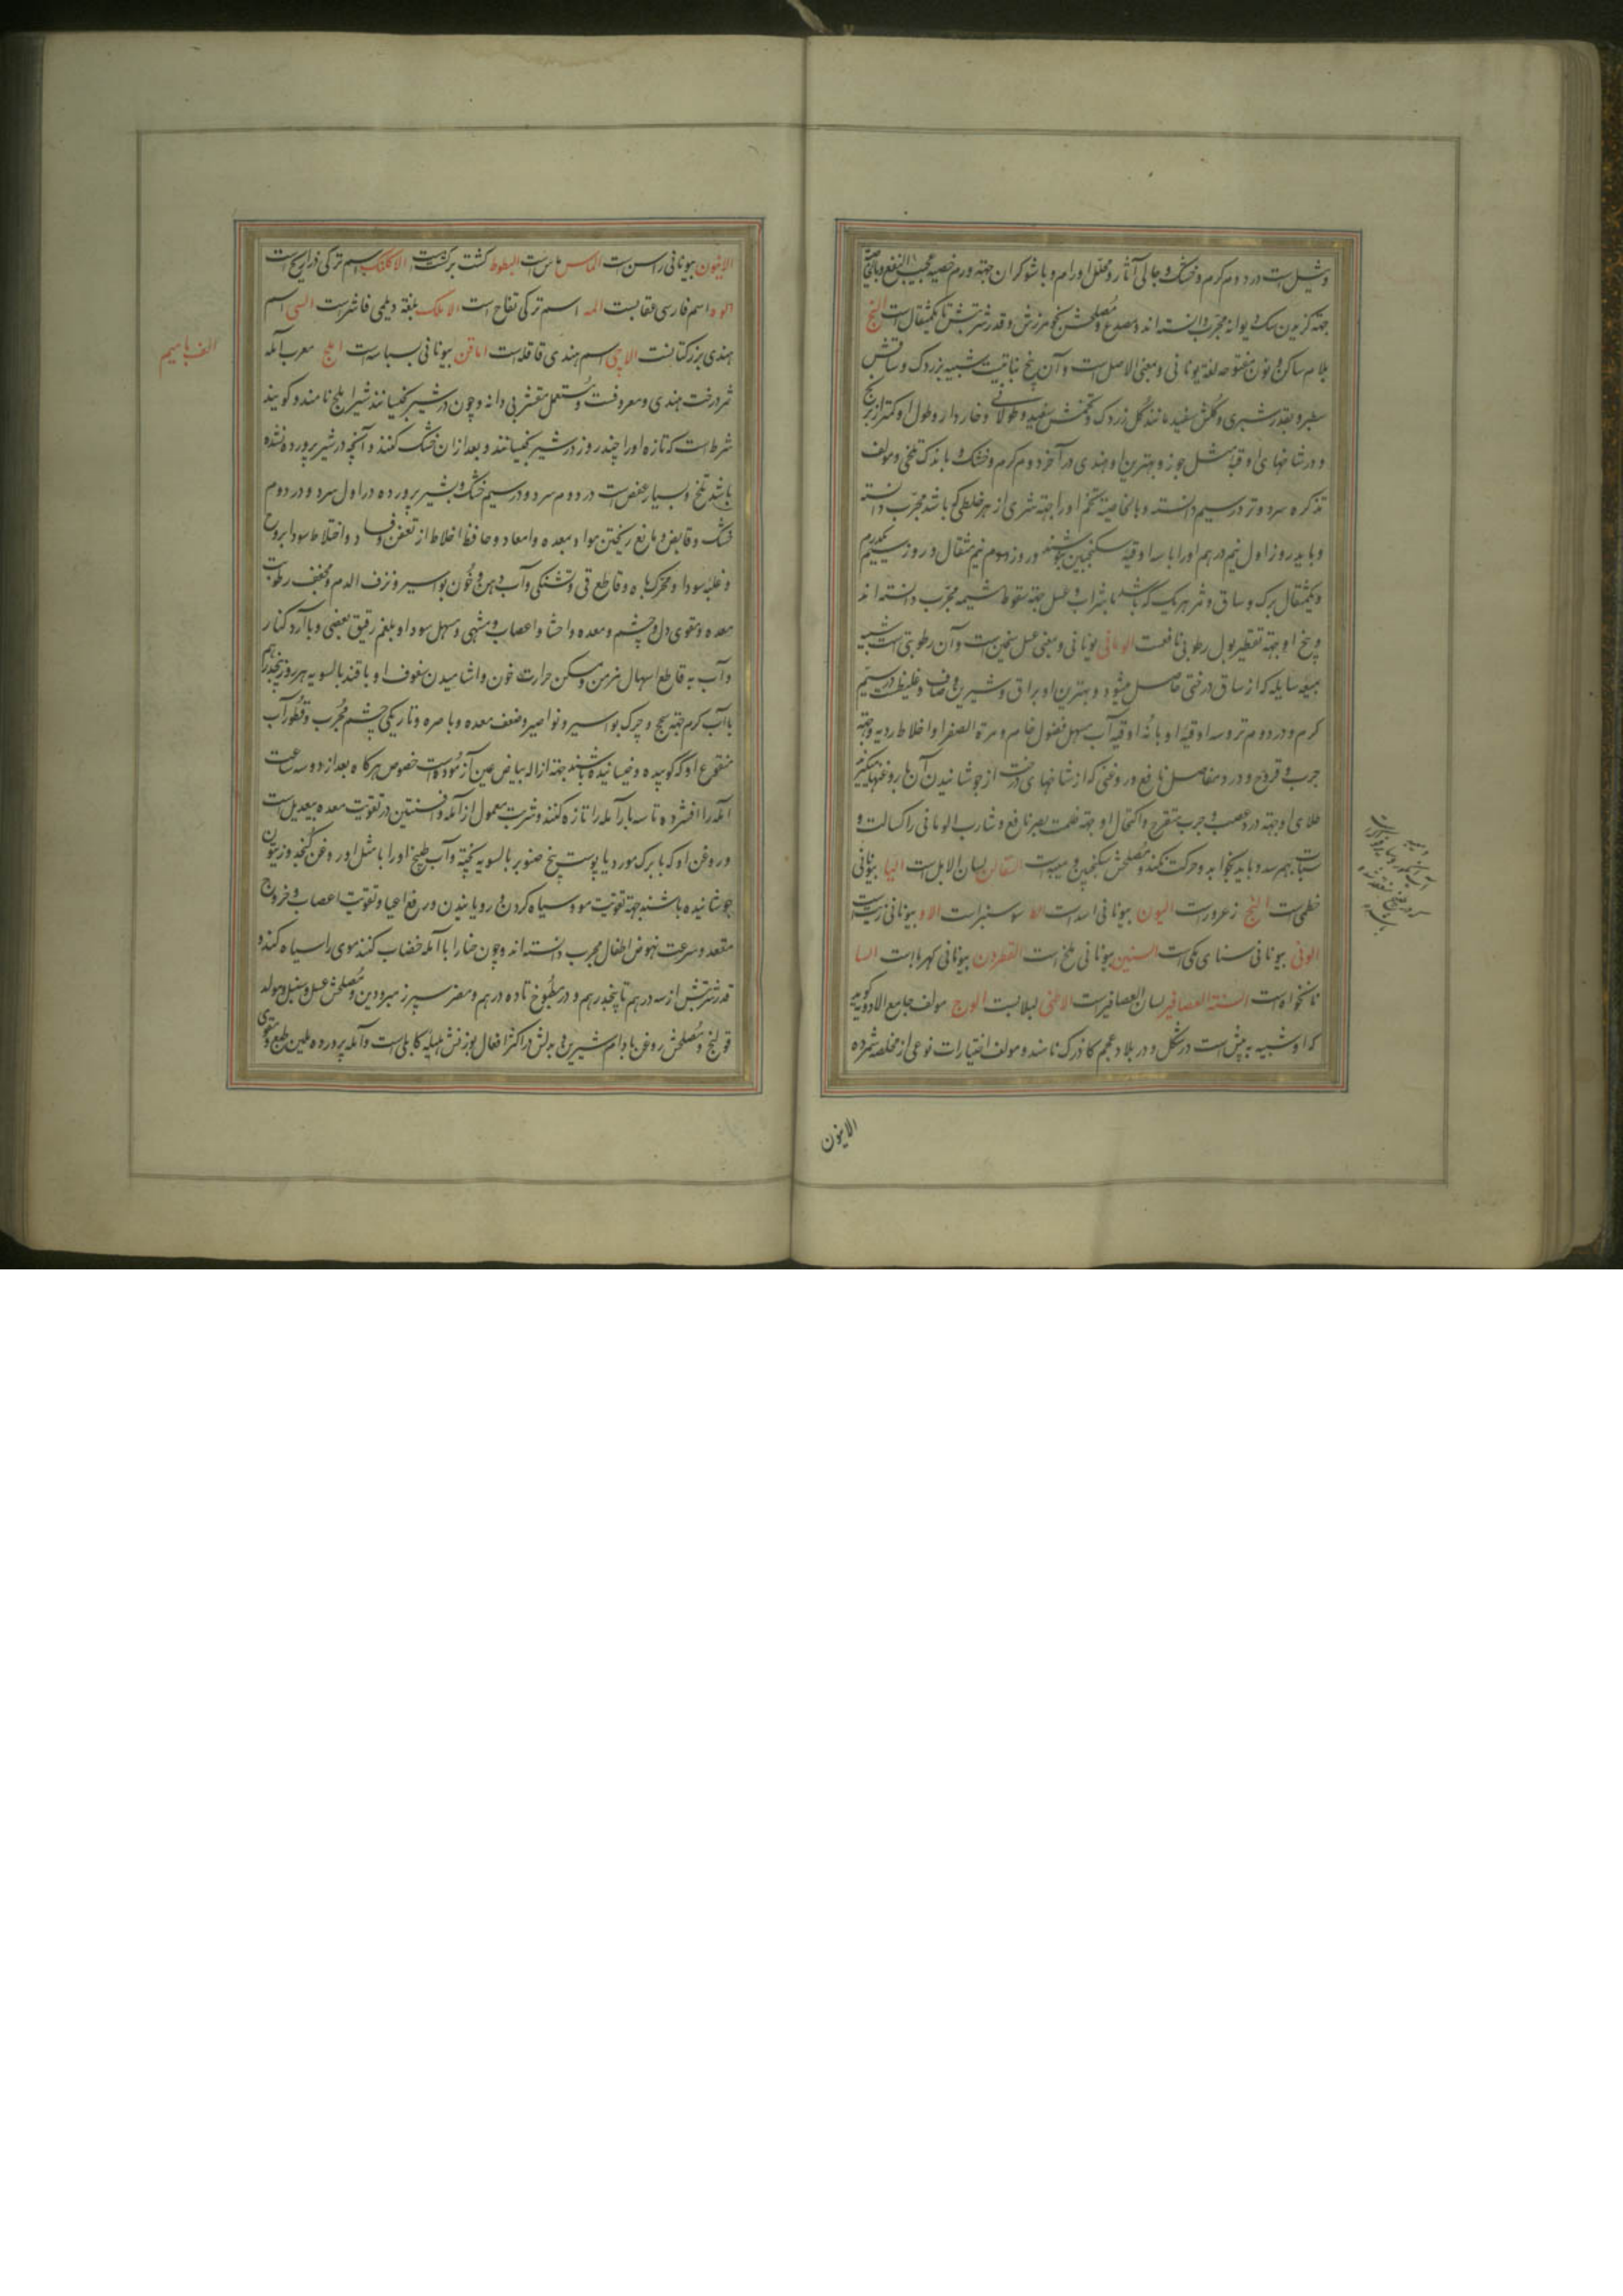 وشیل است در دوم گرم و خشک و جالی آثار و محلل اورام و با شوکران جهة ورم خصیه عجیب النفع و بالخاصیة
جهة گزیدن سک دیوانه مجرب دانسته اند و مصدع و مصلحش کوهزرش و قدر شربتش تا یکمثقال است النج
بلام ساکن و نون مفتوحه لغة یونانی و بمعنی الاصل است و آن بیخ نباتیست شبیه بزردک و ساقش
سطبر و بقدر شبری و گلش سفید مانند گل زردک و تخمش سفید و طولانی و خاردار و طول او کمتر از برنج
و در شاخهای او قبه مثل جوز و بهترین او هندی در آخر دوم گرم و خشک و با اندک تلخی و مولف
تذکره سرد و تر در سیم دانسته و بالخاصیة تخم او را جهة شری از هر خلطی که باشد مجرب دانسته
و باید روز اول نیم درهم او را با سه اوقیه سکنجبین بنوشند در روز دوم نیم مثقال و روز سیم یکدرم
و یکمثقال برگ و ساق و ثمر هر یک که باشد با شراب و عسل جهة سقوط مشیمه مجرب دانسته اند
و بیخ او جهة تقطیر بول رطوبی نافعست الومالی یونانی و بمعنی عسل ثخین است و آن رطوبتی است شبیه
بمیعه سایله که از ساق درختی حاصل میشود و بهترین او براق و شیرین و صاف و غلیظ است در سیم
گرم و در دوم تر و سه اوقیه او با نه اوقیه آب مسهل فضول خام و مرة الصفرا و اخلاط ردیه و جهة
جرب و قروح و درد مفاصل نافع و روغنی که از شاخهای درخت از جوشانیدن آن با روغنها میگیرند
طلای او جهة درد عصب و جرب متقرح و اکتحال او جهة ظلمت بصر نافع و شارب الومالی را کسالت و
سبات بهم رسد و باید بخوابد و حرکت نکند و مصلحش سکنجبین و میبه است لسان الابل است الیا بیونانی
خطمی است النج زعرور است الیون بیونانی اسد است سوسنبر است الاو بیونانی زیت است
الونی بیونانی سنای مکی است السنین بیونانی ملح است القطردن بیونانی کهرباست السا
نانخواه است السنة العصافیر لسان العصافیر است الاطنی لبلابست الوج مولف جامع الادویه گوید
که او شبیه به بیش است در شکل و در بلاد عجم کاذرک نامند و مولف اختیارات نوعی از مخلصه شمرده
الاینون
الاینون بیونانی راسن است الماس ماس است البطوط کشت برکشت است الاکلنک اسم ترکی ذراریح است
الوه اسم فارسی عقابست المه اسم ترکی تفاح است الاملک بلغة دیلمی فاشرست السی اسم
هندی بزر کتانست الاچی اسم هندی قاقله است اماقن بیونانی بسباسه است املج معرب آمله
الف با میم
ثمر درخت هندی و معروفست و مستعمل مقشر بی دانه و چون در شیر بخیسانند شیر املج نامند و گویند
شرط است که تازه او را چند روز در شیر بخیسانند و بعد از ان خشک کنند و آنچه در شیر پرورده نشده
باشد تلخ و بسیار عفص است در دوم سرد و در سیم خشک و بشیر پرورده در اول سرد و در دوم
خشک و قابض و مانع ریختن مواد بمعده و امعا و حافظ اخلاط از تعفن و فساد و اختلاط سودا بروح
و غلبه سودا و محرک باه و قاطع قی و تشنگی و آب دهن و خون بواسیر و نزف الدم و مجفف رطوبت
معده و مقوی دل و چشم و معده و احشا و اعصاب و مشهی و مسهل سودا و بلغم رقیق بعضی و با آرد کنار
و آب به قاطع اسهال مزمن و مسکن حرارت خون و اشامیدن سفوف او با قند بالسویه هر روز پنجدرهم
با آب گرم جهة سحج و چرک بواسیر و نواصیر و ضعف معده و باصره و تاریکی چشم مجرب و قطور آب
منقوع او که کوبیده و خیسانیده باشند جهة ازاله بیاض عین آزموده است خصوص هرگاه بعد از دو سه ساعت
آمله را افشرده تا سه بار آمله را تازه کنند و شربت معمول از آمله و افسنتین در تقویت معده بیعدیل است
و روغن او که با برگ مورد یا پوست بیخ صنوبر بالسویه پخته و آب طبیخ او را با مثل او روغن کنجد و زیتون
جوشانیده باشند جهة تقویت مو و سیاه کردن و رویانیدن و رفع اعیا و تقویت اعصاب و خروج
مقعد و سرعت نهوض اطفال مجرب دانسته اند و چون حنا را با آمله خضاب کنند موی را سیاه کند و
قدر شربتش از سه درهم تا پنجدرهم و در مطبوخ تا ده درهم و مضر سپرز مبرودین و مصلحش عسل و سنبل و مولد
قولنج و مصلحش روغن بادام شیرین و بدلش در اکثر افعال بوزنش هلیله کابلی است و آمله پرورده ملین طبع و مقوی